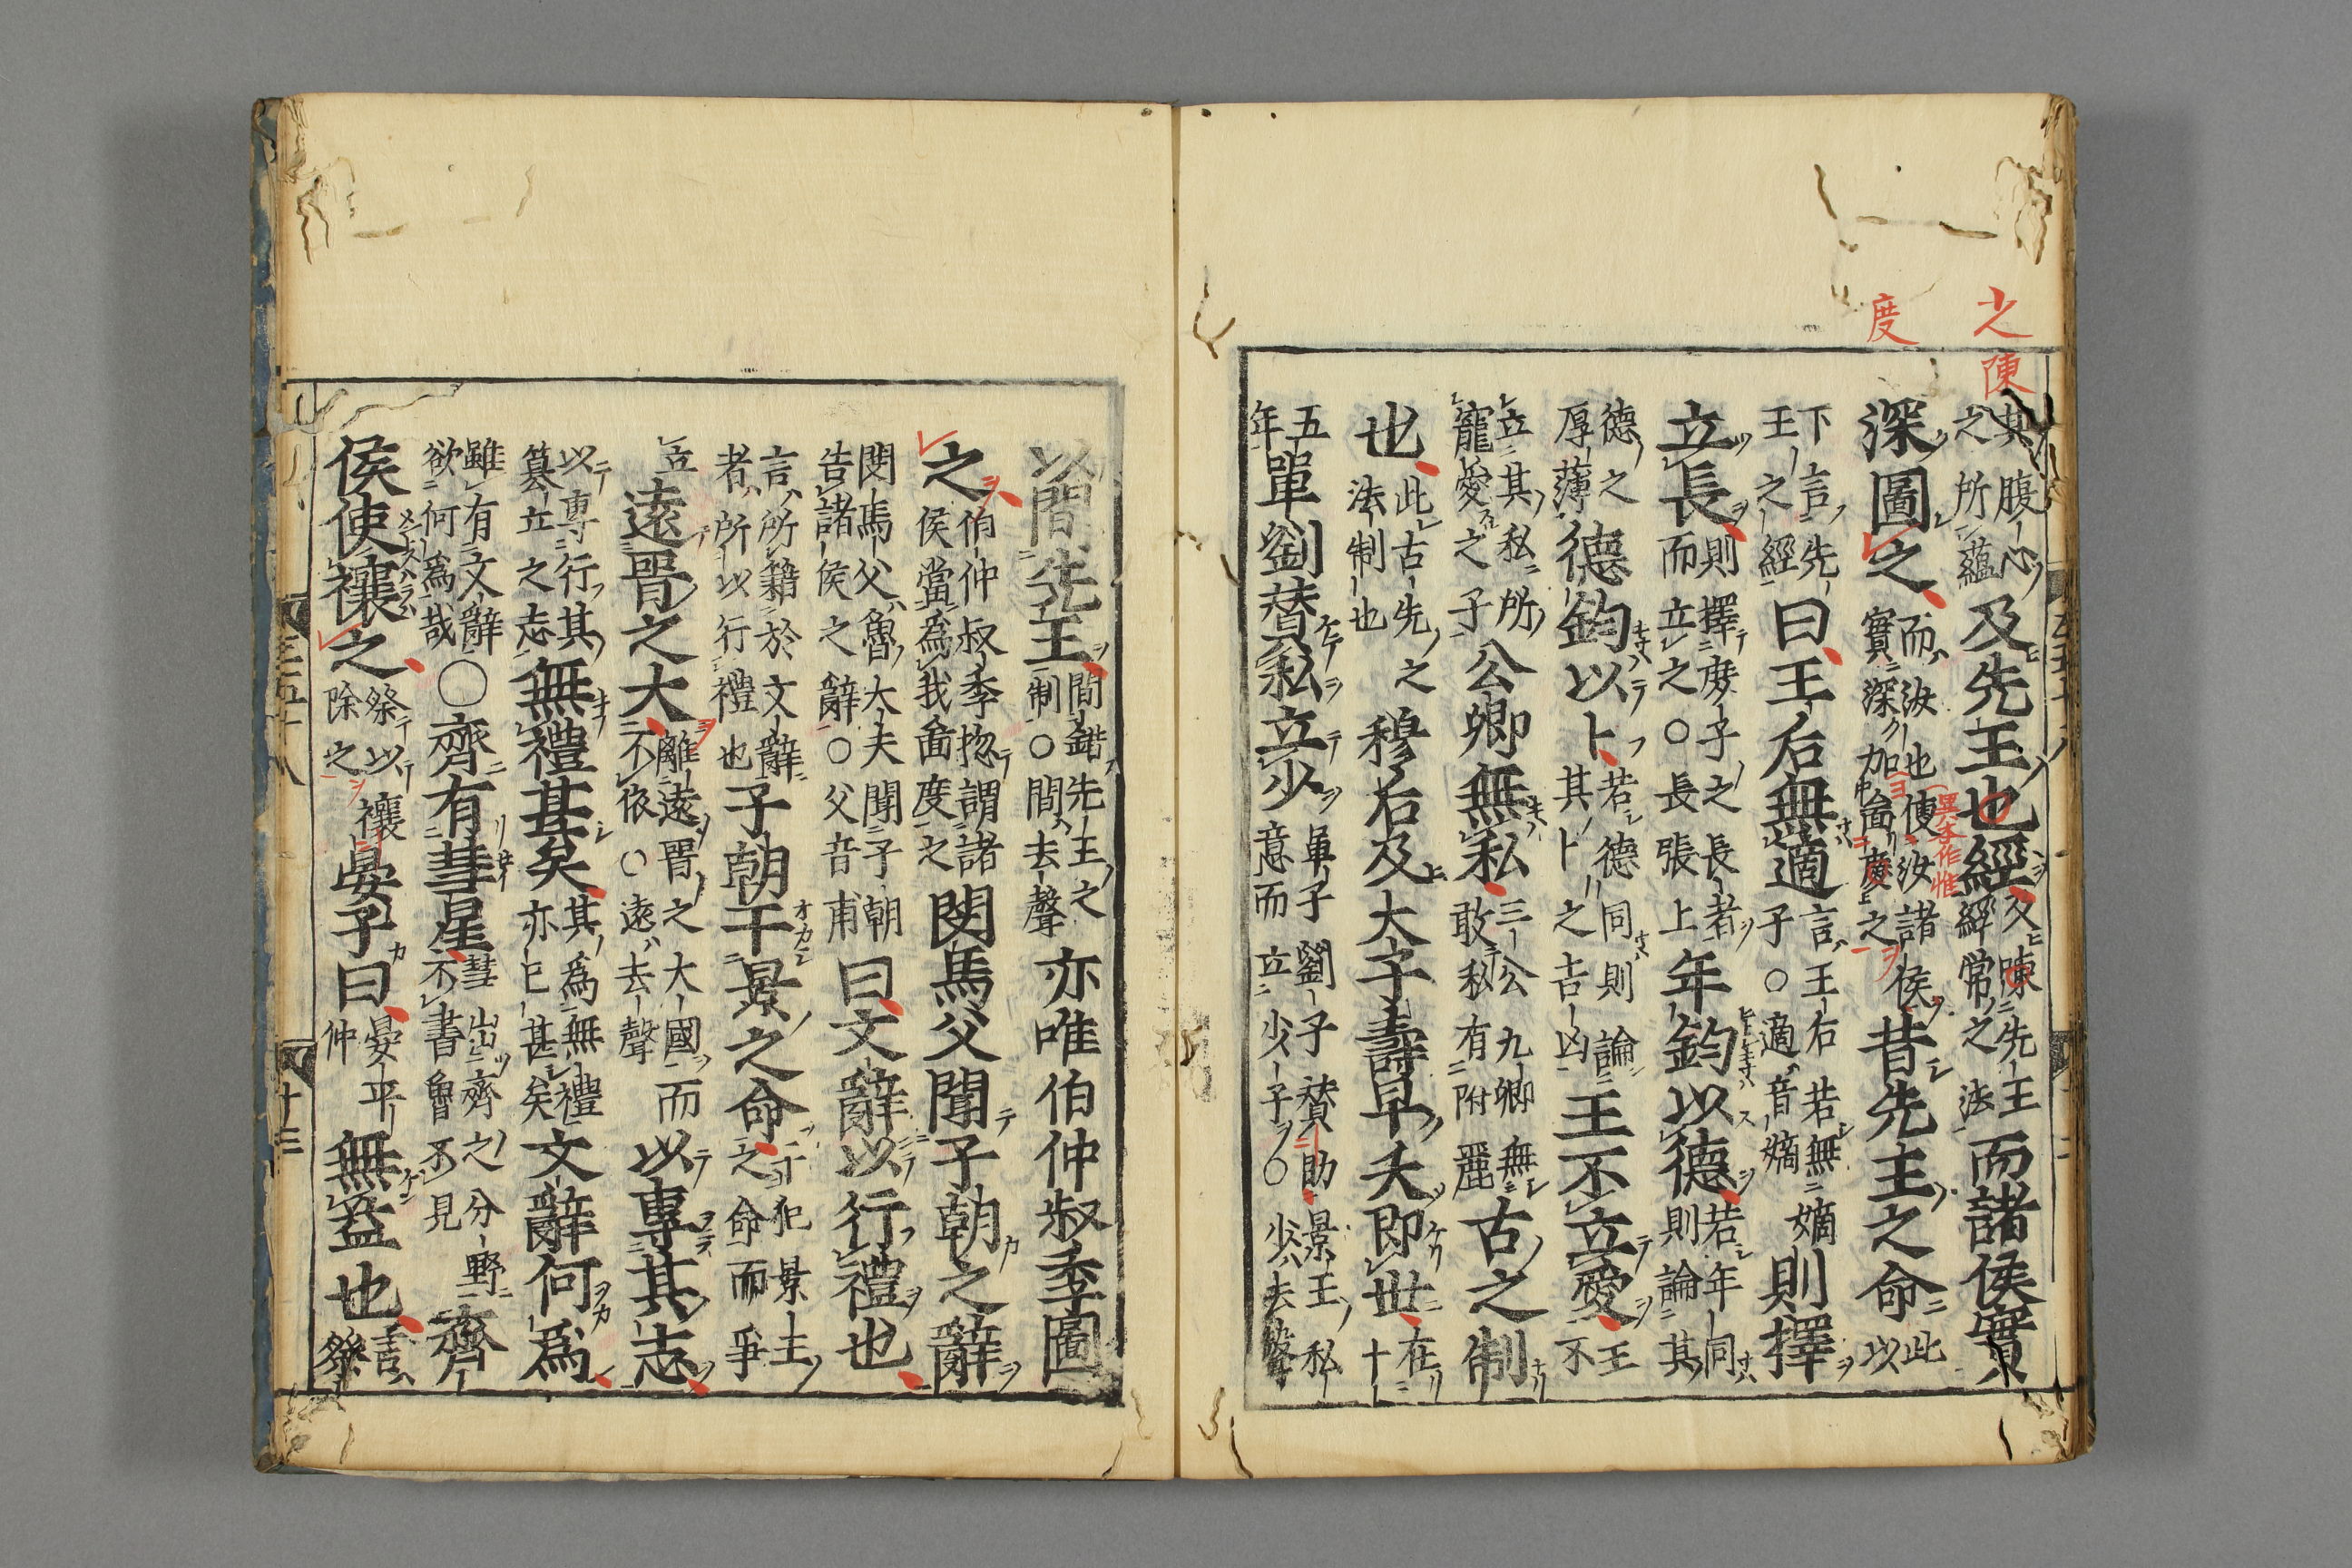 之陳
度
其腹心
之所蘊
及先王也經
又陳先王
經常之法
而諸侯實
深圖之
而汝也使汝諸侯
實深加圖度之
異本作惟
昔先王之命
此
以
下言先
王之經
曰王后無適
言王后若無嫡
子○適音嫡
則擇
立長
則擇庶子之長者
而立之○長張上
年鈞以德
若年同
則論其
德之
厚薄
德鈞以卜
若德同則論
其卜之吉凶
王不立愛
王
不
立其私所
寵愛之子
公卿無私
三公九卿無
敢私有附麗
古之制
也
此古先之
法制也
穆后及大子壽早夭即世
在
十
五
年
單劉贊私立少
單子劉子贊助景王私
意而立少子○少去聲
以間先王
間錯先王之
制○間去聲
亦唯伯仲叔季圖
之
伯仲叔季揔謂諸
侯當爲我圖度之
閔馬父聞子朝之辭
閔馬父魯大夫聞子朝
告諸侯之辭○父音甫
曰文辭以行禮也
言所籍於文辭
者所以行禮也
子朝干景之命
干犯景王
之命而爭
立
遠晋之大
離遠晋之大國而
不依○遠去聲
以專其志
以專行其
簒立之志
無禮甚矣
其爲無禮
亦已甚矣
文辭何爲
雖有文辭
欲何爲哉
○齊有彗星
彗出齊之分野
不書魯不見
齊
侯使禳之
祭以禳
除之
晏子曰
晏平
仲
無益也
言
祭